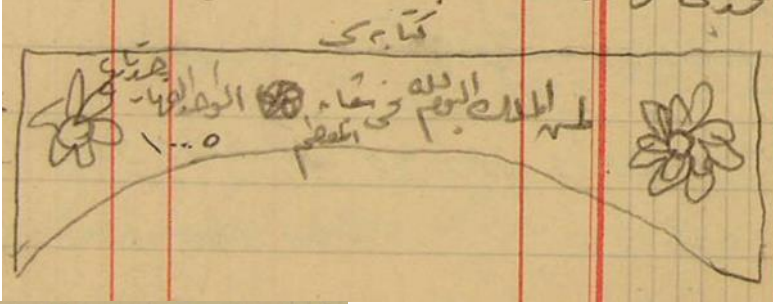 كتابه سى
لمن الملك اليوم لله فى المعظم الواحد القهار
١٠٠٥